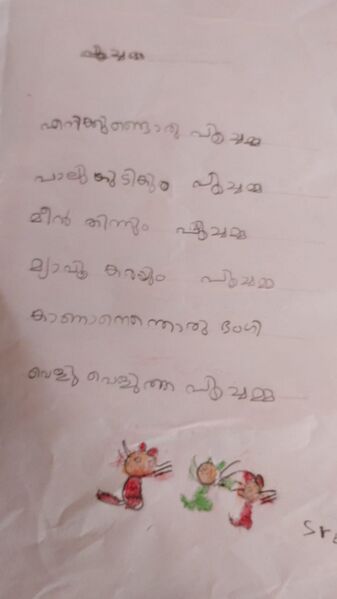 പൂച്ചമ്മ
എനിക്കുണ്ടൊരു പൂച്ചമ്മ
പാലുകുടിക്കും പൂച്ചമ്മ
മീൻ തിന്നും പൂച്ചമ്മ
മ്യാവൂ കരയും പൂച്ചമ്മ
കാണാനെന്തൊരു ഭംഗി
വെളു വെളുത്ത പൂച്ചമ്മ